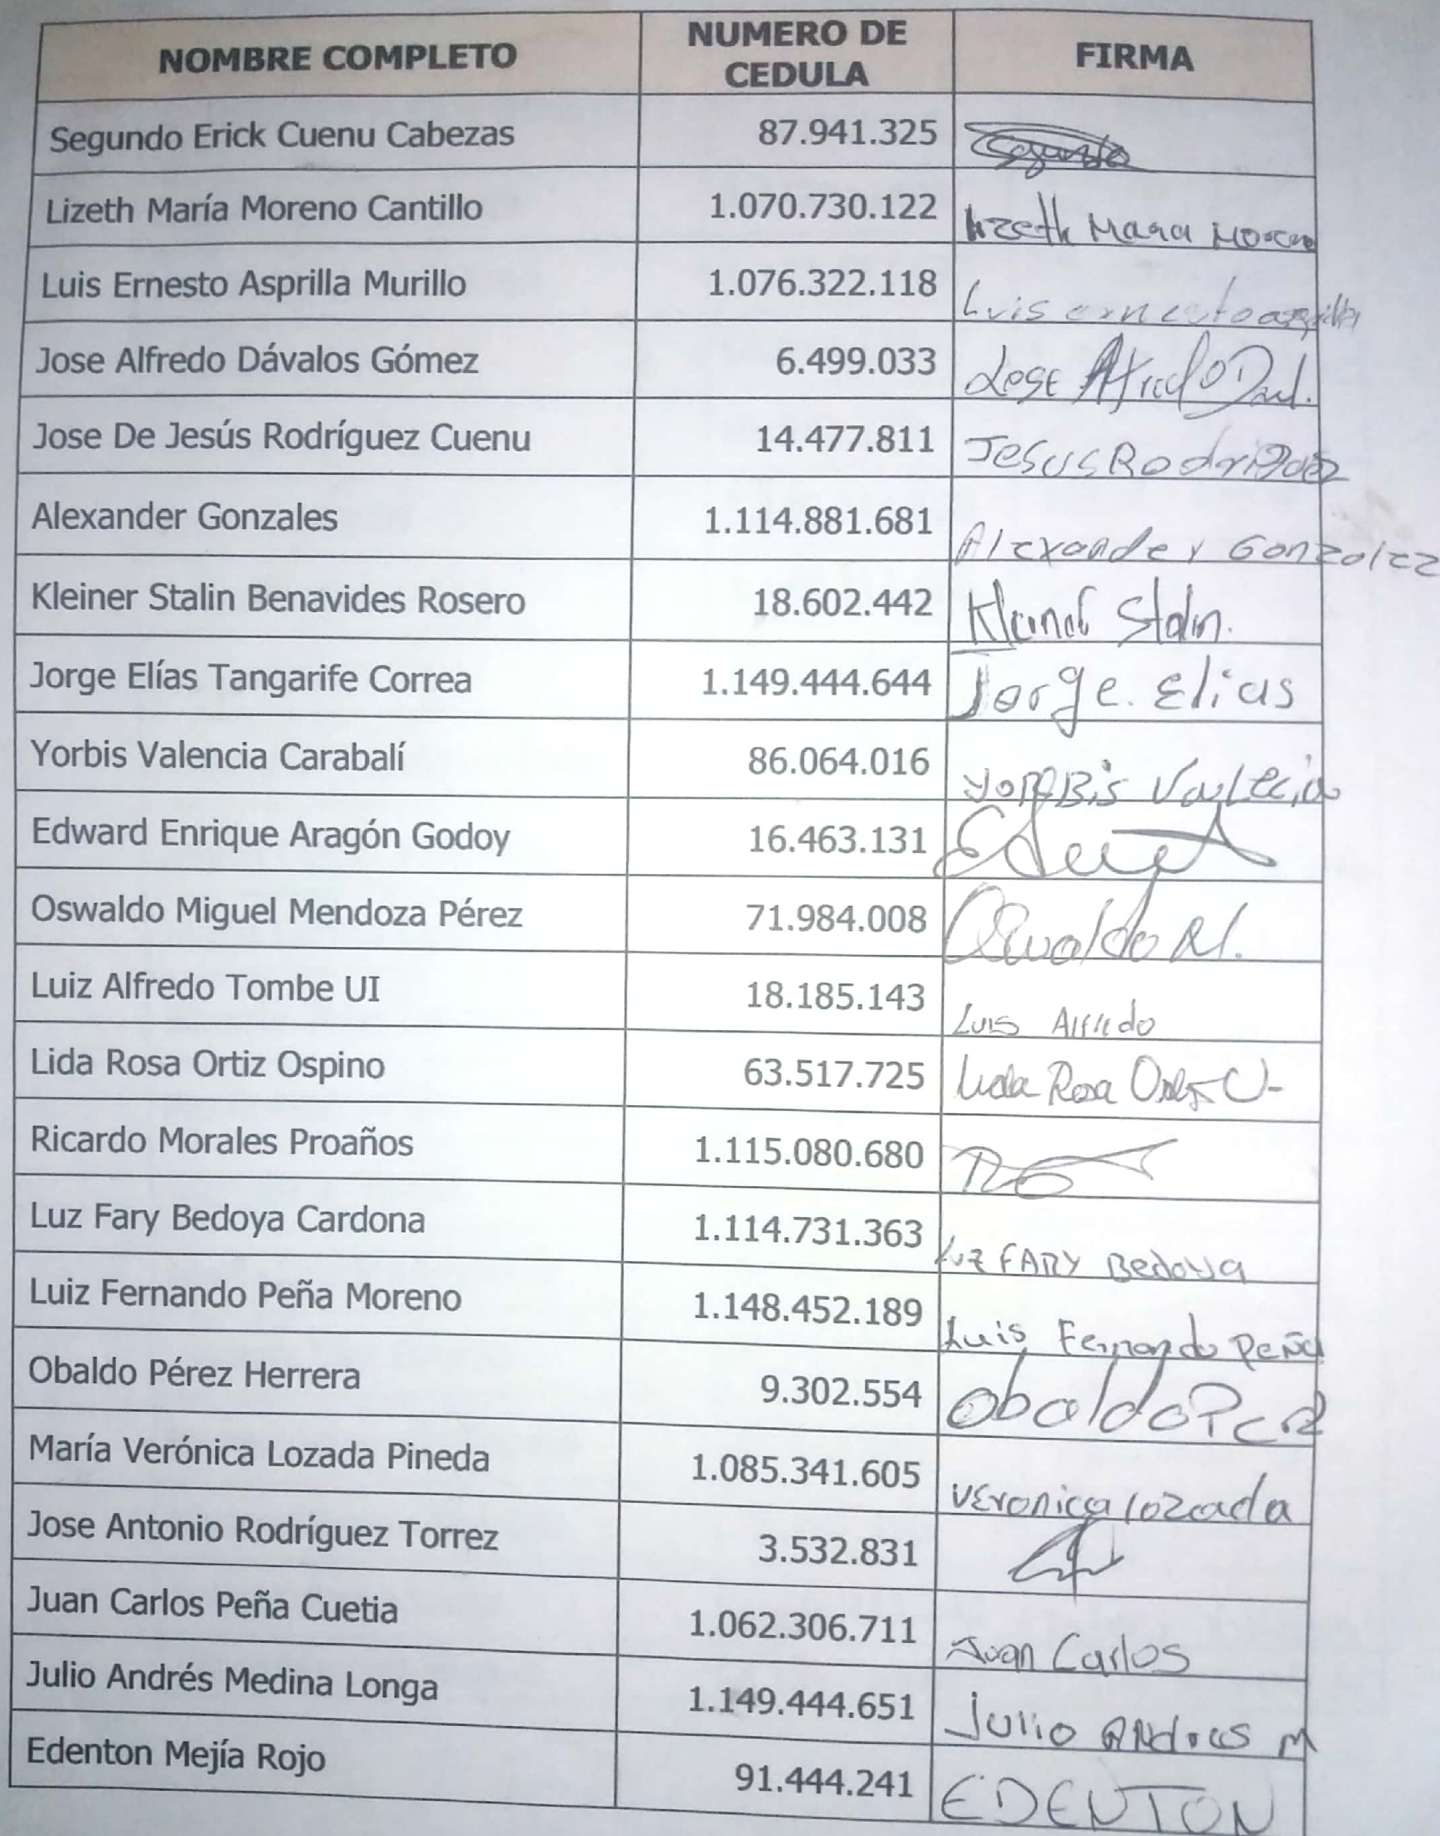 NOMBRE COMPLETO NUMERO DE CEDULA FIRMA
Segundo Erick Cuenu Cabezas 87.941.325 Segundo
Lizeth María Moreno Cantillo 1.070.730.122 Lizeth Maria Moreno
Luis Ernesto Asprilla Murillo 1.076.322.118 Luis ernesto asprilla
Jose Alfredo Dávalos Gómez 6.499.033 Jose Alfredo
Jose De Jesús Rodríguez Cuenu 14.477.811 Jesus Rodriguez
Alexander Gonzales 1.114.881.681 Alexander Gonzalez
Kleiner Stalin Benavides Rosero 18.602.442 Stalin.
Jorge Elías Tangarife Correa 1.149.444.644 Jorge. Elias
Yorbis Valencia Carabalí 86.064.016
Edward Enrique Aragón Godoy 16.463.131
Oswaldo Miguel Mendoza Pérez 71.984.008 Oswaldo M.
Luiz Alfredo Tombe UI 18.185.143 Luis Alfredo
Lida Rosa Ortiz Ospino 63.517.725 Lida Rosa
Ricardo Morales Proaños 1.115.080.680
Luz Fary Bedoya Cardona 1.114.731.363 LUZ FARY Bedoya
Luiz Fernando Peña Moreno 1.148.452.189 Luis Fernando Peña
Obaldo Pérez Herrera 9.302.554 Obaldo
María Verónica Lozada Pineda 1.085.341.605 Veronica lozada
Jose Antonio Rodríguez Torrez 3.532.831
Juan Carlos Peña Cuetia 1.062.306.711 Juan Carlos
Julio Andrés Medina Longa 1.149.444.651 Julio Andres M
Edenton Mejía Rojo 91.444.241 EDENTON